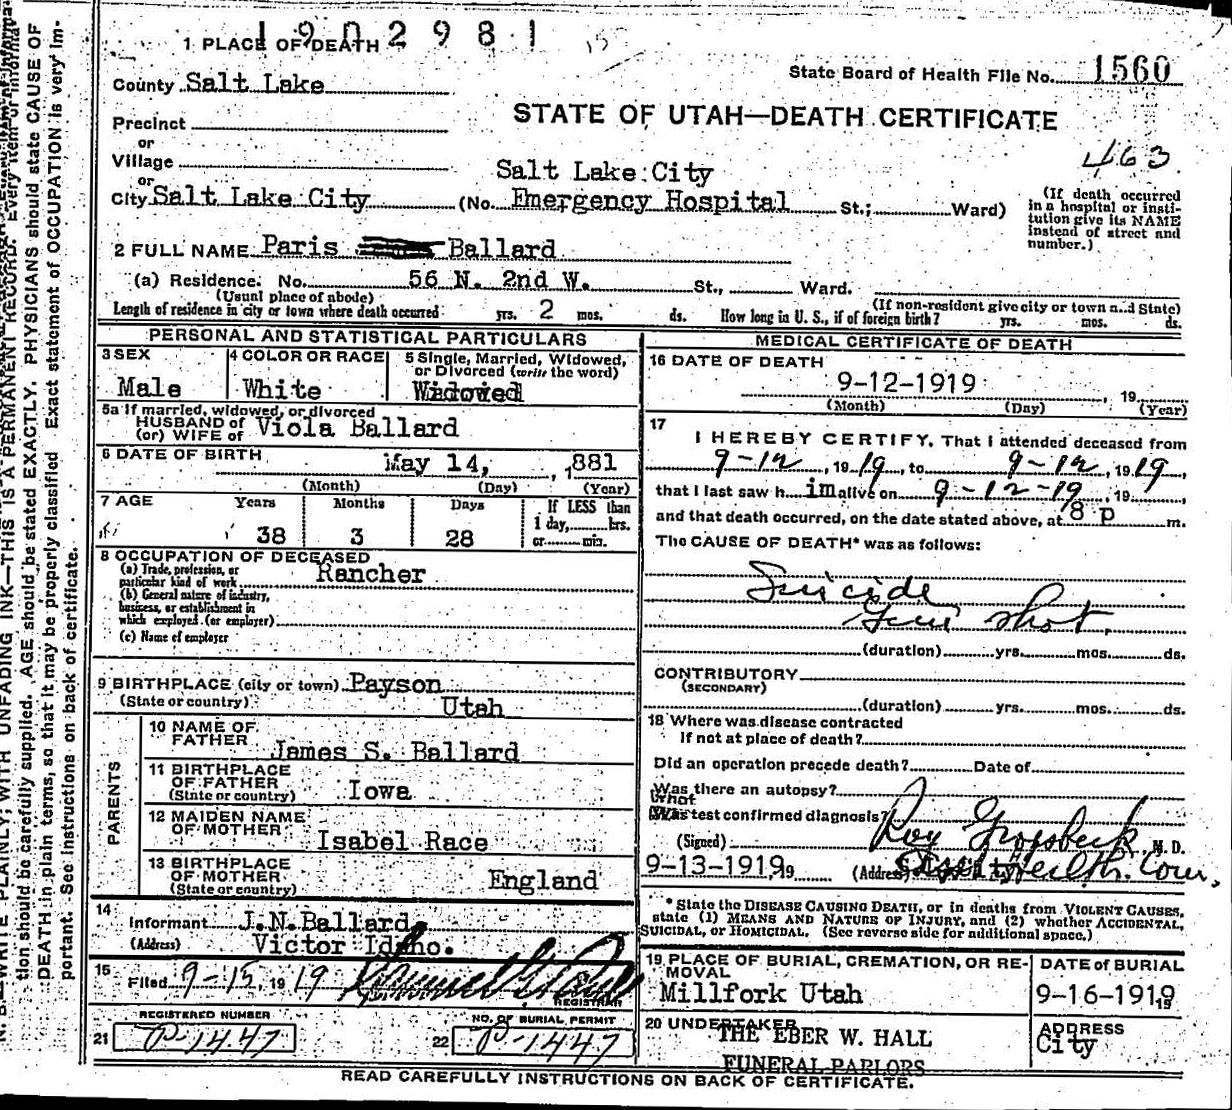 1902981
1 PLACE OF DEATH
State Board of Health File No. 1560
County Salt Lake
STATE OF UTAH—DEATH CERTIFICATE
Precinct
or
463
Village
or
Salt Lake City
City Salt Lake City (No. Emergency Hospital St.; Ward)
(If death occurred in a hospital or insti-
tution give its NAME
instead of street and
number.)
2 FULL NAME Paris Ballard
(a) Residence. No. 56 N. 2nd W. St., Ward.
(Usual place of abode) (If non-resident give city or town and State)
Length of residence in city or town where death occurred yrs. 2 mos. ds. How long in U. S., if of foreign birth? yrs. mos. ds.
PERSONAL AND STATISTICAL PARTICULARS
3 SEX Male
4 COLOR OR RACE White
5 Single, Married, Widowed,
or Divorced (write the word)
Widowed
5a If married, widowed, or divorced
HUSBAND of
(or) WIFE of Viola Ballard
6 DATE OF BIRTH May 14, 1881
(Month) (Day) (Year)
7 AGE Years Months Days If LESS than
1 day, hrs.
or min.
38 3 28
8 OCCUPATION OF DECEASED
(a) Trade, profession, or
particular kind of work Rancher
(b) General nature of industry,
business, or establishment in
which employed (or employer)
(c) Name of employer
9 BIRTHPLACE (city or town) Payson
(State or country) Utah
PARENTS
10 NAME OF
FATHER James S. Ballard
11 BIRTHPLACE
OF FATHER
(State or country) Iowa
12 MAIDEN NAME
OF MOTHER Isabel Race
13 BIRTHPLACE
OF MOTHER
(State or country) England
14
Informant J.N.Ballard
(Address) Victor Idaho.
15
Filed 9-15, 19 19
REGISTRAR
REGISTERED NUMBER
21 P-1447
NO. OF BURIAL PERMIT
22 P-1447
MEDICAL CERTIFICATE OF DEATH
16 DATE OF DEATH
9-12-1919, 19
(Month) (Day) (Year)
17
I HEREBY CERTIFY, That I attended deceased from
9-12, 19 19, to 9-12, 19 19,
that I last saw h im alive on 9-12-19, 19 ,
and that death occurred, on the date stated above, at 8 p m.
The CAUSE OF DEATH* was as follows:
Suicide
Gun shot.
(duration) yrs. mos. ds.
CONTRIBUTORY
(SECONDARY)
(duration) yrs. mos. ds.
18 Where was disease contracted
if not at place of death?
Did an operation precede death? Date of
Was there an autopsy?
What
test confirmed diagnosis?
(Signed) Roy Groesbeck, M. D.
9-13-1919, 19 (Address) Health Com,
* State the DISEASE CAUSING DEATH, or in deaths from VIOLENT CAUSES,
state (1) MEANS AND NATURE OF INJURY, and (2) whether ACCIDENTAL,
SUICIDAL, or HOMICIDAL. (See reverse side for additional space.)
19 PLACE OF BURIAL, CREMATION, OR RE-
MOVAL
Millfork Utah
DATE of BURIAL
9-16-1919
19
20 UNDERTAKER
THE EBER W. HALL
FUNERAL PARLORS
ADDRESS
City
READ CAREFULLY INSTRUCTIONS ON BACK OF CERTIFICATE.
WRITE PLAINLY, WITH UNFADING INK—THIS IS A PERMANENT RECORD. Every item of informa-
tion should be carefully supplied. AGE should be stated EXACTLY. PHYSICIANS should state CAUSE OF
DEATH in plain terms, so that it may be properly classified. Exact statement of OCCUPATION is very im-
portant. See instructions on back of certificate.